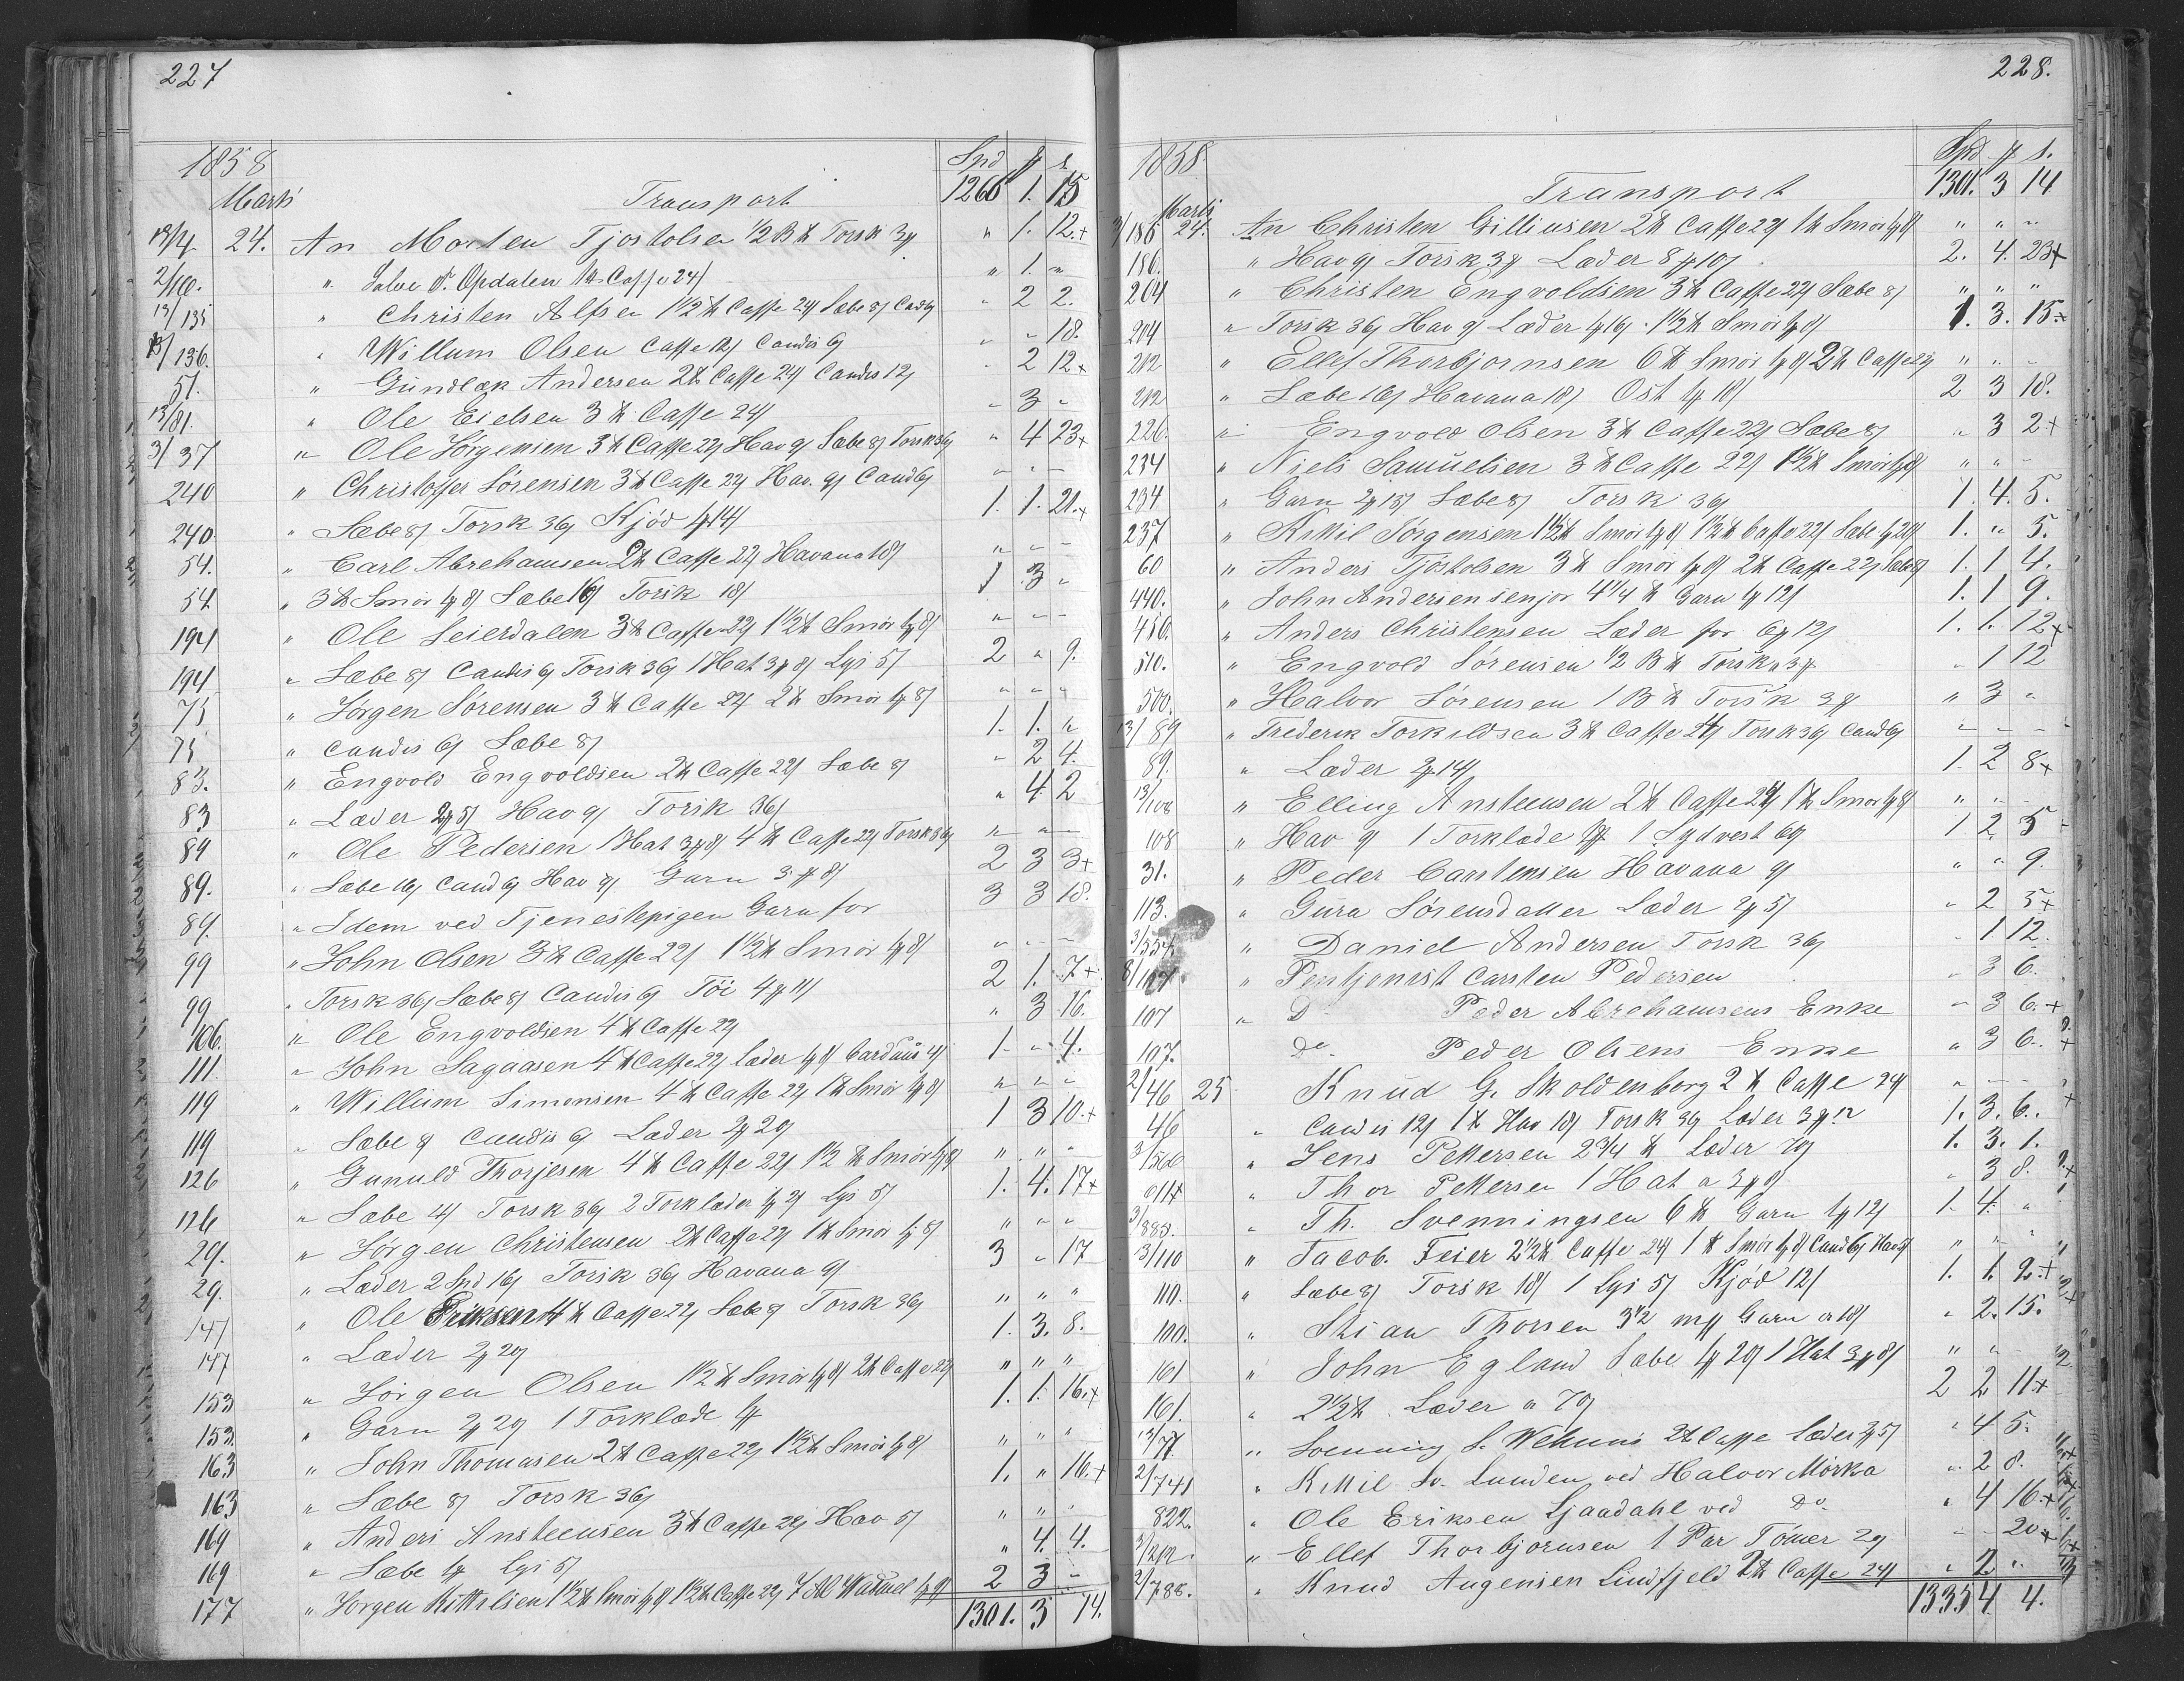 227
1858 Spd ꝑ s
Marts Transport 1266 1. 15
13/4 24. An Morten Tjostolsen 1/2 B ℔ Torsk 3ꝑ " 1. 12.+
2/ " Salve S. Opdalen 1 ℔ Caffe 24/ " 1. "
13/135 " Christen Alfsen 1 1/2 ℔ Caffe 24/ Sæbe 8/ Cand 6/ " 2 2.
13/136. " Willum Olsen Caffe 12/ Candis 6/ " " 18.
51. " Gundlæk Andersen 2 ℔ Caffe 24/ Candis 12/ " 2 12+
13/81. " Ole Eielsen 3 ℔ Caffe 24/ " 3 "
3/37 " Ole Jörgensen 3 ℔ Caffe 22/ Hav 9/ Sæbe 8/ Torsk 36/ " 4 23+
240 " Christoffer Sörensen 3 ℔ Caffe 22/ Hav. 9/ Cand 6/ " " "
240 " Sæbe 8/ Torsk 36/ Kjöd 1ꝑ14/ 1. 1. 21.+
54. " Carl Abrehamsen 2 ℔ Caffe 22/ Havana 18/ " " "
54 " 3 ℔ Smör 1ꝑ 8/ Sæbe 16/ Torsk 18/ 1 3 "
194 " Ole Seierdalen 3 ℔ Caffe 22/ 1 1/2 ℔ Smör 1ꝑ8/ " " "
194 " Sæbe 8/ Candis 6/ Torsk 36/ 1 Hat 3ꝑ 8/ Lys 5/ 2 " 9.
75 " Jörgen Sörensen 3 ℔ Caffe 22/ 2 ℔ Smör 1ꝑ 8/ " " "
75 " Candis 6/ Sæbe 8/ 1. 1. "
83. " Engvold Engvoldsen 2 ℔ Caffe 22/ Sæbe 8/ " 2 4.
83 " Læder 2ꝑ 5/ Hav 9/ Torsk 36/ " 4 2
89 " Ole Pedersen 1 Hat 3ꝑ8/ 4 ℔ Caffe 22/ Torsk 36/ " " "
89. " Sæbe 16/ Cand 6/ Hav 9/ Garn 3ꝑ 8/ 2 3 3+
89. " Idem ved Tjenestepigen Garn for 3 3 18.
99 " John Olsen 3 ℔ Caffe 22/ 1 1/2 ℔ Smör 1ꝑ 8/ " " "
99 " Torsk 36/ Sæbe 8/ Candis 6/ Töi 4ꝑ 11/ 2 1. 7+
106. " Ole Engvoldsen 4 ℔ Caffe 22/ " 3 16.
111. " John Sagaasen 4 ℔ Caffe 22/ Læder 1ꝑ 8/ Carduus 4/ 1 " 4.
119 " Willum Simonsen 4 ℔ Caffe 22/ 1 ℔ Smör 1ꝑ 8/ " " "
119 " Sæbe 8/ Candis 6/ Læder 2ꝑ 20/ 1 3 10.+
126 " Gunuld Thorjesen 4 ℔ Caffe 22/ 1/2 ℔ Smör 1ꝑ 8/ " " "
126 " Sæbe 4/ Torsk 36/ 2 Torklæder 1ꝑ 2/ Lys 5/ 1. 4. 17+
29. " Jörgen Christensen 2 ℔ Caffe 22/ 1 ℔ Smör 1ꝑ 8/ " " "
29. " Læder 2 Spd 16/ Torsk 36/ Havana 9/ 3 " 17
147 " Ole Eriksen 4 ℔ Caffe 22/ Sæbe 8/ Torsk 36/ " " "
147 " Læder 2ꝑ 20/ 1. 3. 8.
153 " Jörgen Olsen 1 1/2 ℔ Smör 1ꝑ 8/ 2 ℔ Caffe 22/ " " "
153. " Garn 2ꝑ 20/ 1 Torklæde 1ꝑ 1. 1. 16.+
163 " John Thomasen 2 ℔ Caffe 22/ 1 1/2 ℔ Smör 1ꝑ 8/ " " "
163 " Sæbe 8/ Torsk 36/ 1. " 16.+
169 " Anders Ansteensen 3 ℔ Caffe 22/ Hav 5/ " " "
169 " Sæbe 4/ Lys 5/ " 4. 4.
177 " Jorgen Kittelsen 1 1/2 ℔ Smör 1ꝑ 8/ 1 1/2 ℔ Caffe 22/ 7 Al Wadmel 1ꝑ 8/ 2 3 "
1301. 3 14.
228.
1858. Spd ꝑ s.
Marts Transport 1301. 3 14
3/186 24. An Christen Gilliusen 2 ℔ Caffe 22/ 1 ℔ Smör 1ꝑ 8/ " " "
186. " Hav 9/ Torsk 3ꝑ Læder 8ꝑ 10/ 2. 4. 23+
204 " Christen Engvoldsen 3 ℔ Caffe 22/ Sæbe 8/ " " "
204 " Torsk 36/ Hav 9/ Læder 1ꝑ 16/ 1 1/2 ℔ Smör 1ꝑ 8/ 1. 3. 15.+
212 " Ellef Thorbjörnsen 6 ℔ Smör 1ꝑ 8/ 2 ℔ Caffe 22/ " " "
212 " Sæbe 16/ Havana 18/ Ost 1ꝑ 18/ 2 3 18.
226. " Engvold Olsen 3 ℔ Caffe 22/ Sæbe 8/ " 3 2+
234 " Niels Samuelsen 3 ℔ Caffe 22/ 1 1/2 ℔ Smör 1ꝑ 8/ " " "
234 " Garn 2ꝑ 13/ Sæbe 8/ Torsk 36/ 1. 4. 5.
237 " Kittil Jörgensen 1 1/2 ℔ Smör 1ꝑ 8/ 1 1/2 ℔ Caffe 22/ Sæbe 1ꝑ 20/ 1. " 5.
60 " Anders Tjöstolsen 3 ℔ Smör 1ꝑ 8/ 2 ℔ Caffe 22/ Sæbe 8/ 1. 1 4.
440. " John Andersen senjor 4 1/4 ℔ Garn 1ꝑ 12/ 1. 1 9.
456. " Anders Christensen Læder for 6ꝑ 12/ 1. 1. 12+
510. " Engvold Sörensen 1/2 B ℔ Torsk a 3ꝑ " 1 12
500. " Halvor Sörensen 1 B ℔ Torsk 3ꝑ " 3 "
13/89 " Frederik Torkildsen 3 ℔ Caffe 24/ Torsk 36/ Cand 6/ " " "
89. " Læder 2ꝑ 14/ 1. 2 8+
13/108 " Elling Ansteensen 2 ℔ Caffe 24/ 1 ℔ Smör 1ꝑ 8/ " " "
108 " Hav 9/ 1 Torklæde 1ꝑ 1 Sydvest 69/ 1 2 5
31. " Peder Carstensen Havana 9/ " " 9.
113. " Gura Sörensdatter Læder 2ꝑ 5/ " 2 5+
3/554. " Daniel Andersen Torsk 36/ " 1 12.
8/107. " Pentjonist Carsten Pedersen " 3 6.
107 " Do Peder Abrehamsens Enke " 3 6.+
107. Do. Peder Olsens Enke " 3 6.+
2/46 25 Knud G. Skoldenborg 2 ℔ Caffe 24/ " " "
46 " Candis 12/ 1 ℔ Hav 18/ Torsk 36/ Læder 3ꝑ 12 1. 3. 6.
3/566 " Jens Pettersen 2 3/4 ℔ Læder 70/ 1. 3. 1.
" Thor Pettersen 1 Hat a 3ꝑ 8/ " 3 8.
3/885. " Th. Svenningsen 6 ℔ Garn 1ꝑ 12/ 1. 4. "
13/110 " Jacob Feier 2 1/2 ℔ Caffe 24/ 1 ℔ Smör 1ꝑ 8/ Cand 6/ Hav 9/ " " "
110. " Sæbe 8/ Torsk 18/ 1 Lys 5/ Kjöd 12/ 1. 1. 2.+
100. " Stian Thorsen 3 1/2 mꝑ Garn a 18/ " 2. 15.
161 " John Egland Sæbe 1ꝑ 20/ 1 Hat 3ꝑ 8/ " " "
161. " 2 1/2 ℔ Læder a 70/ 2 2 11+
13/77. " Svenning S. Wehuus 2 ℔ Caffe Læder 2ꝑ 5/ " 4 5.
2/741 " Kittil Sv. Lunden ved Halvor Mörka " 2 8.
822. " Ole Eriksen Ljaadahl ved Do. " 4 16.+
3/212. " Ellef Thorbjornsen 1 Par Tömer 20/ " " 20+
2/788. " Knud Augensen Lindfjeld 2 ℔ Caffe 24/ " 2 "
1335 4. 4.